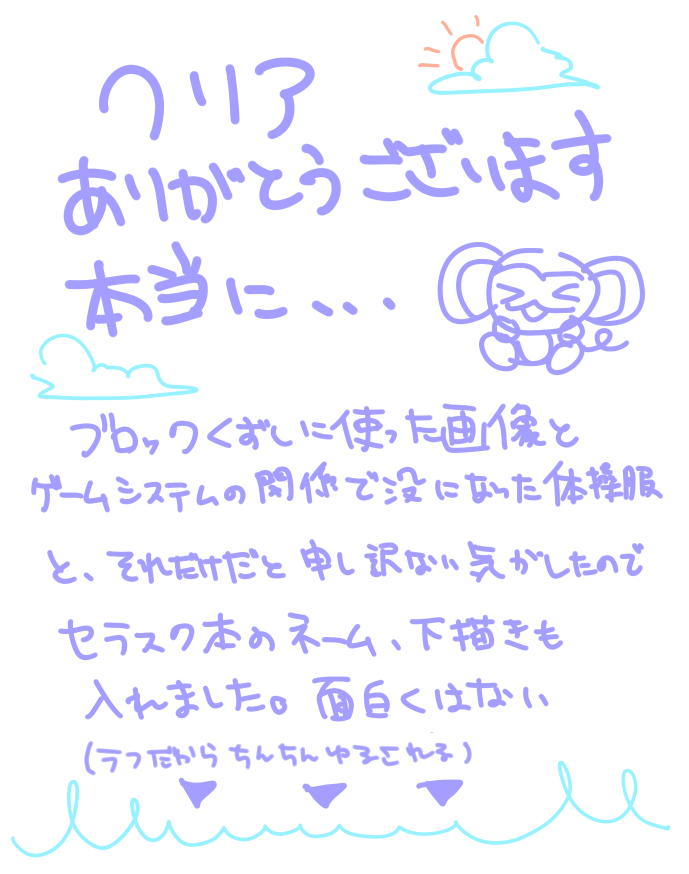 クリア
ありがとうございます
本当に、、、
ブロックくずしに使った画像と
ゲームシステムの関係で没になった体操服
と、それだけだと申し訳ない気がしたので
セラスク本のネーム、下描きも
入れました。面白くはない
(ラフだからちんちんゆるされる)